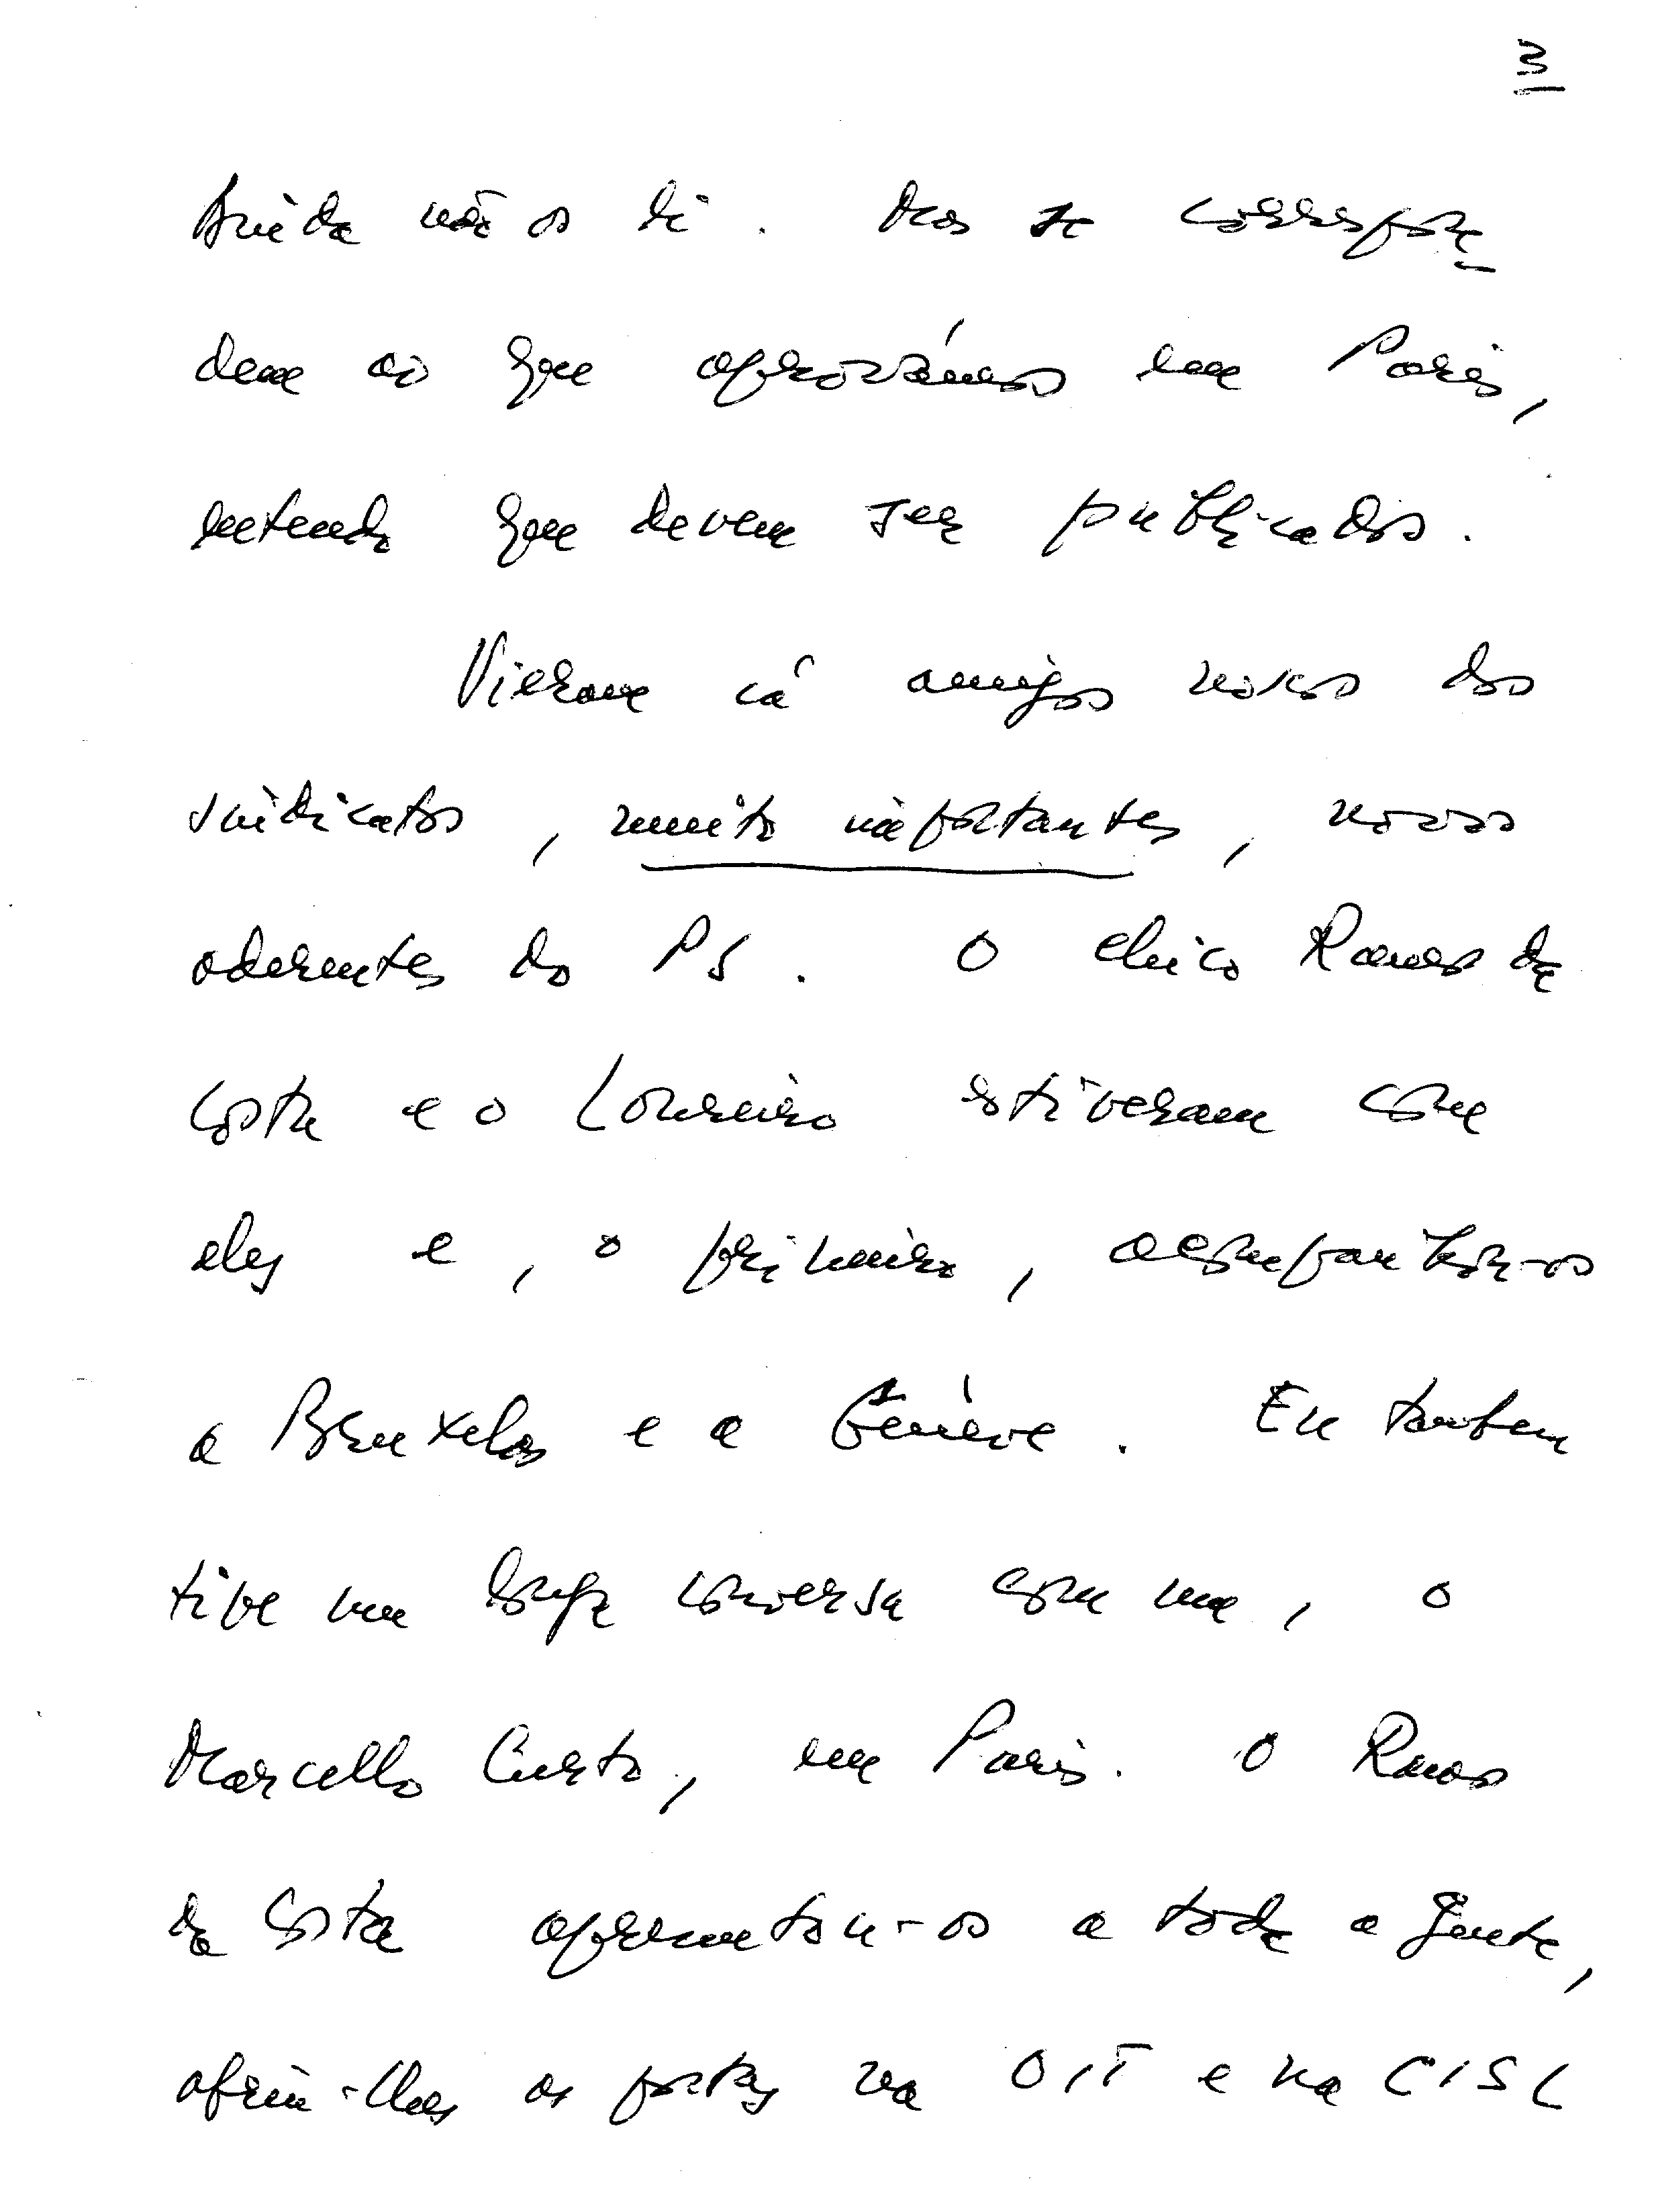 3
Ainda não os li. Mas se correspon
dem ao que aprovámos em Paris,
entendo que devem ser publicados.
Vieram cá amigos novos dos
sindicatos, muito importantes, novos
aderentes do PS. O Chico Ramos da
Costa e o Loureiro estiveram com
eles e, o primeiro, acompanhou-os
a Bruxelas e a Genève. Eu tambem
tive um longa conversa com um, o
Marcello Curto, em Paris. O Ramos
da Costa apresentou-os a toda a gente,
abriu-lhes as portas na OIT e na CISL